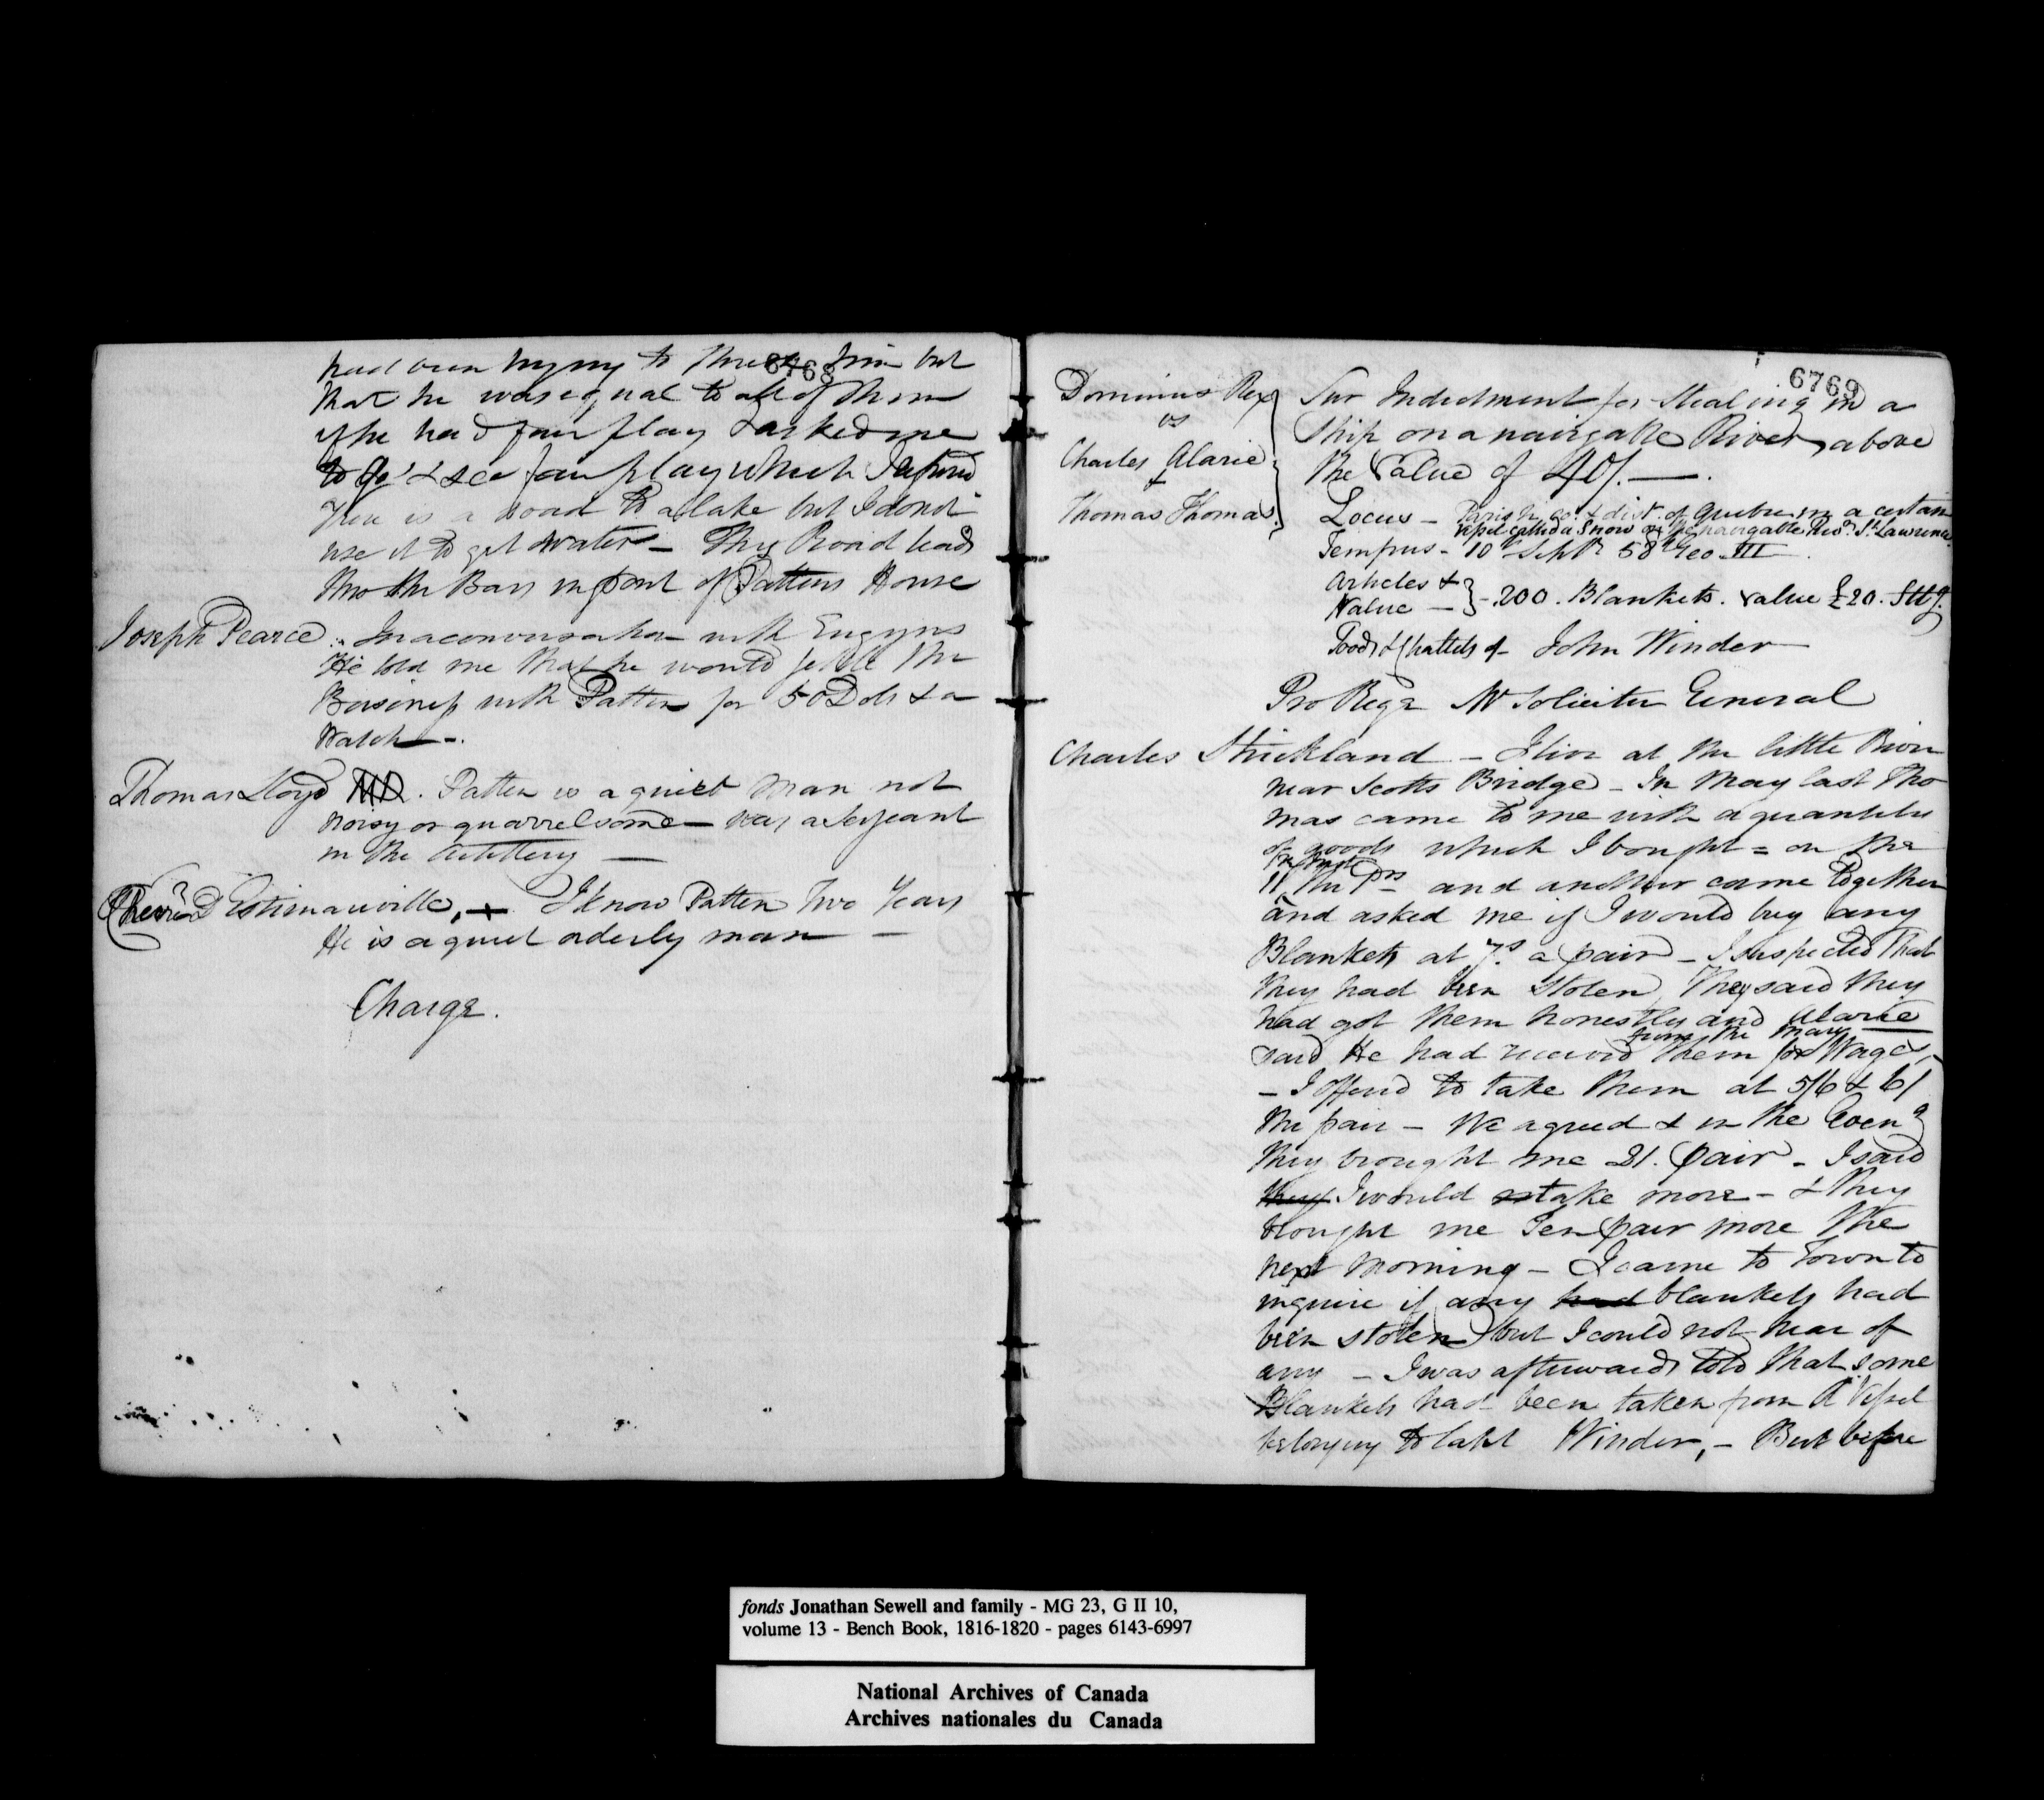 6768
had been trying to thresh him but
that he was equal to all of them
if he had fair play & asked me
to go & see fair play which I refused
There is a road to a lake but I dont
use it to get water - This Road leads
thro the Bars in front of Pattens House
Joseph Pearce. In a conversation with
He told me that he would settle the
Business with Patten for 50 Dols & a
Watch -.
Thomas Lloyd MD. Patten is a quiet man not
noisy or quarrelsome - was a Serjeant
in the Artillery -
Chevr D'Estimauville, + I know Patten Two Years
He is a quiet orderly man -
Charge.
6769
Dominus Rex
vs
Charles Alarie
&
Thomas Thomas.
Sur Indictment for Stealing in a
Ship on a navigable River, above
the value of 40/. -.
Locus - Parish co. & dist. of Quebec, in a certain
vessel called a Snow on the navigable Rivr. St. Lawrence
Tempus - 10th Septr 58th Geo. III
Articles &
Value - } - 200. Blankets. value £20. Stg.
Goods & Chattels of - John Winder
Pro Rege Mr Solicitor General
Charles Strickland - I live at the little River
near Scotts Bridge - In May last Tho
mas came to me with a quantity
of goods which I bought = on the
11 the Prs and another came together
and asked me if I would buy any
Blankets at 7s. a pair - I suspected that
they had been stolen, They said they
had got them honestly and Alarie
from the Mary
said He had received them for Wages,
- I offered to take them at 5/6 & 6/
the pair - We agreed & in the Eveng
they brought me 21. pair - I said
they I would take more - & they
brought me Ten pair more the
next morning - I came to Town to
inquire if any had blankets had
been stolen but I could not hear of
any - I was afterwards told that some
Blankets had been taken from A Vessel
belonging to Winder, - But before
fonds Jonathan Sewell and family - MG 23, G II 10,
volume 13 - Bench Book, 1816-1820 - pages 6143-6997
National Archives of Canada
Archives nationales du Canada